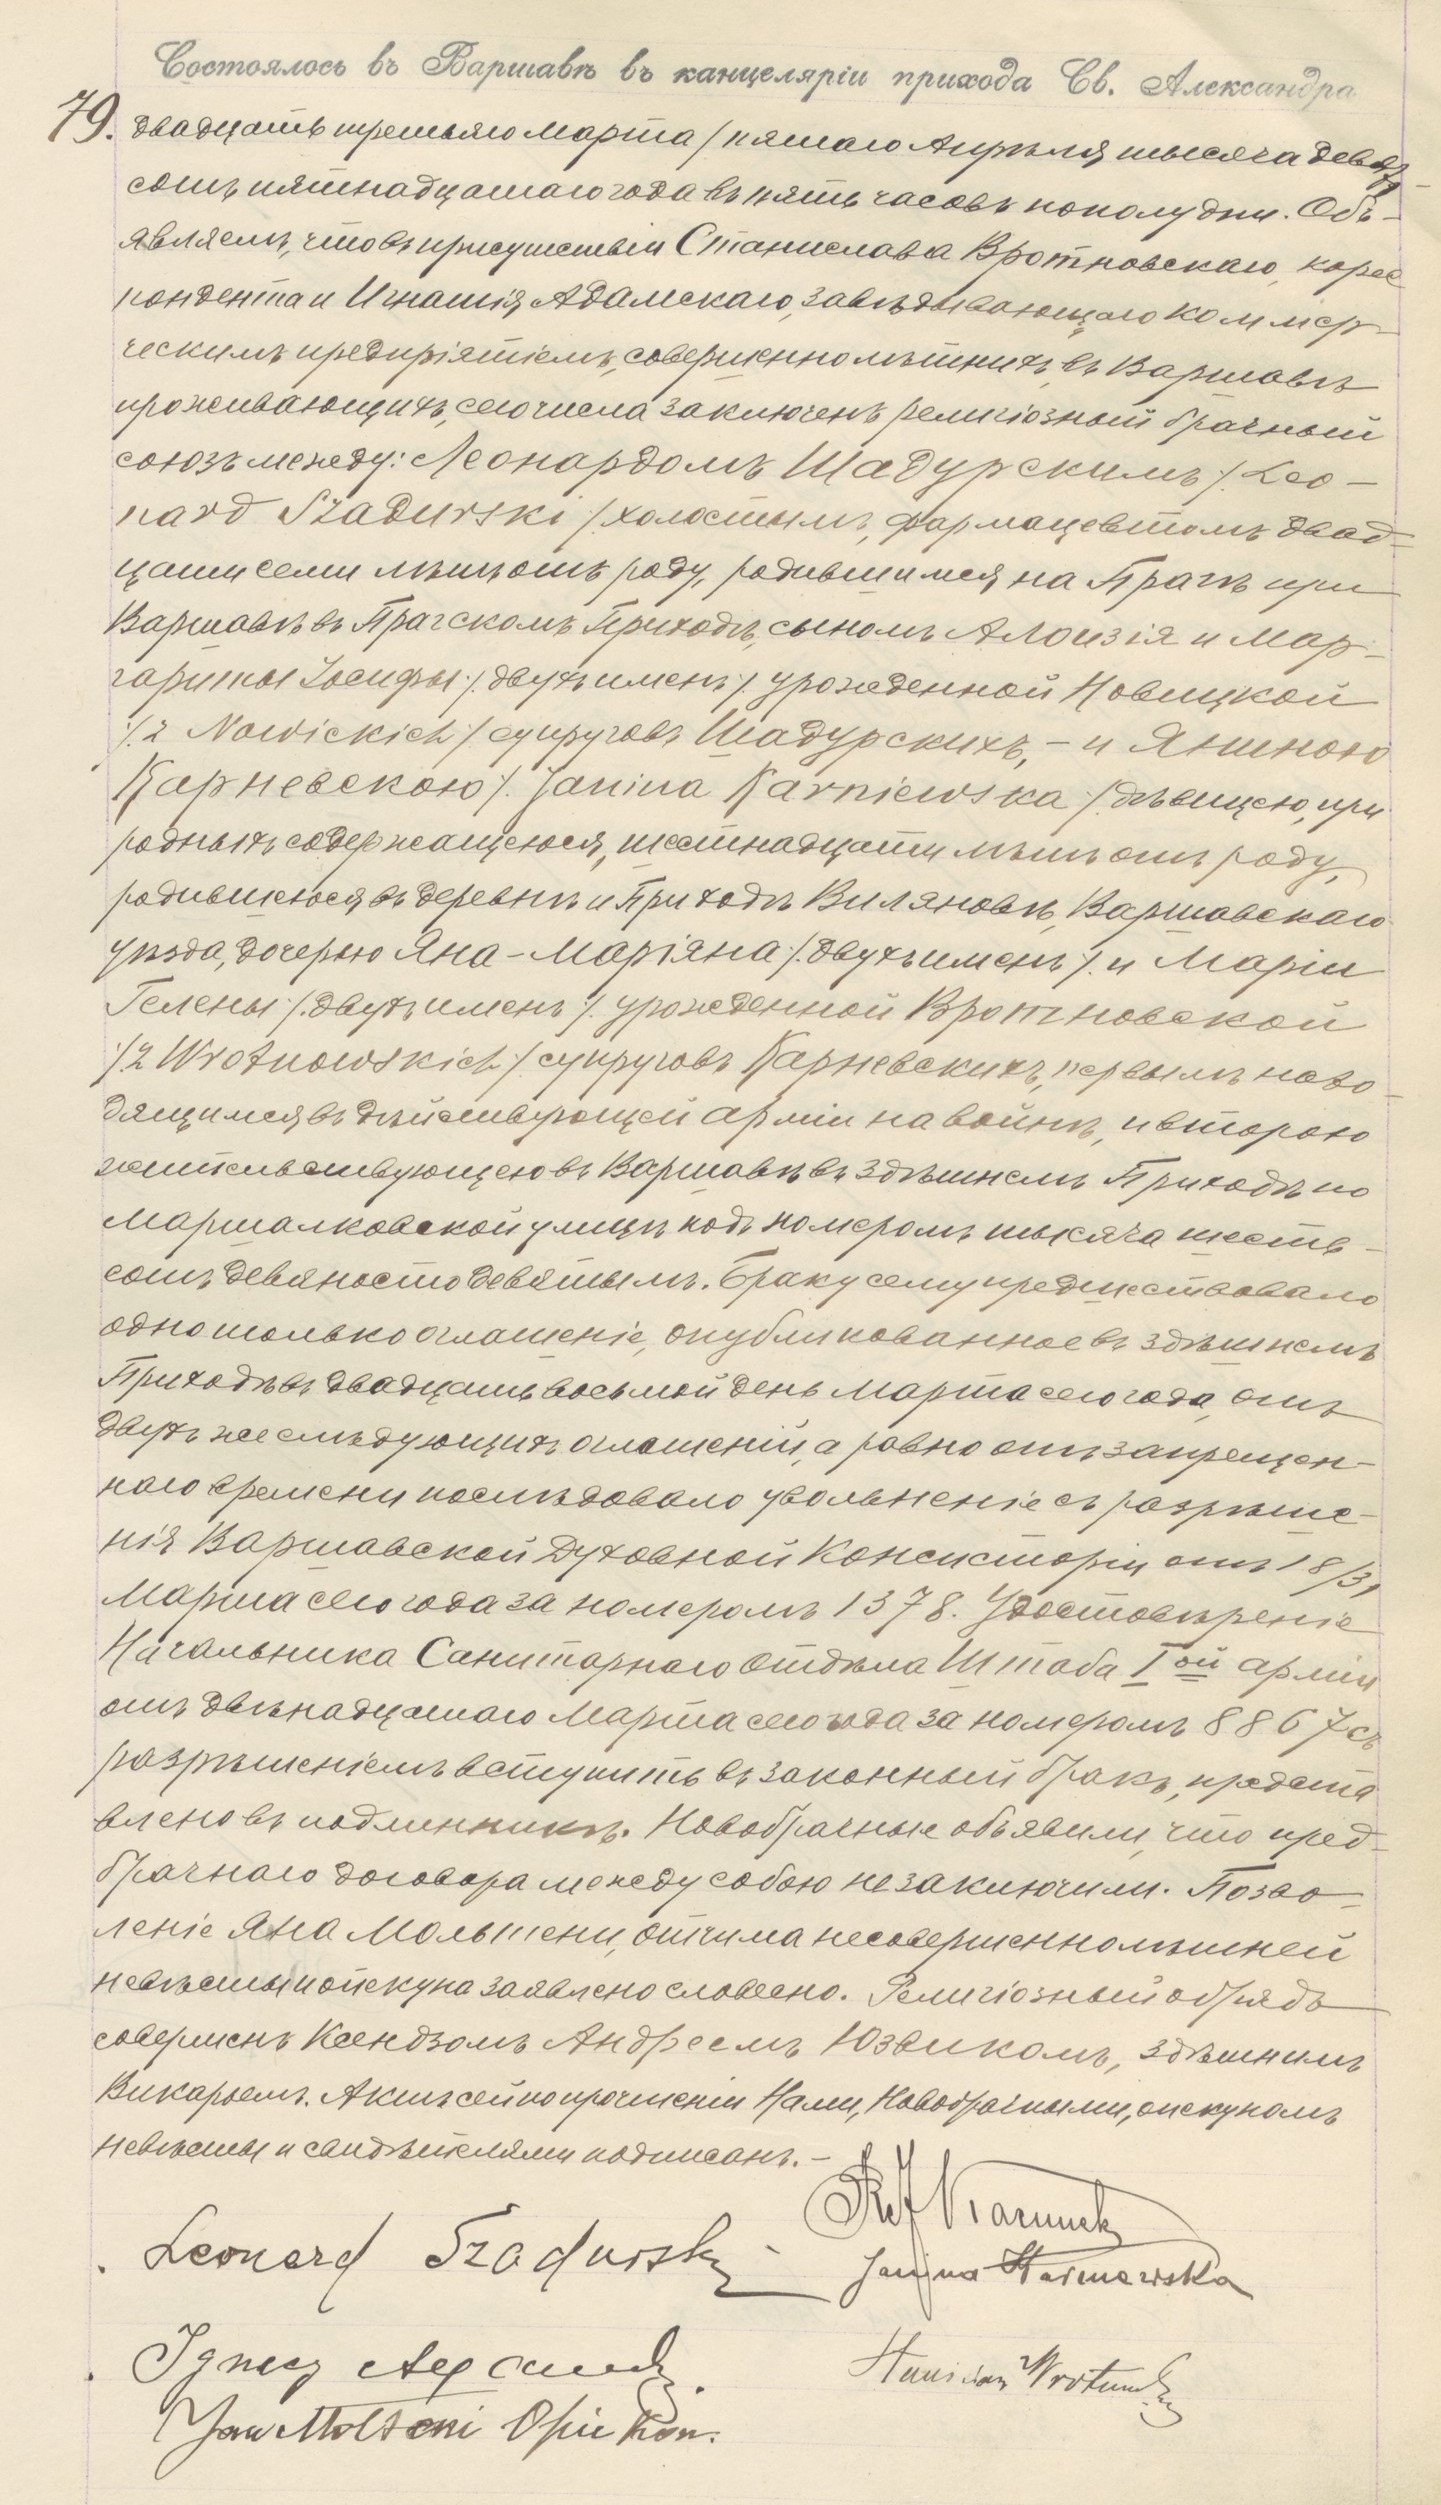 Состоялось въ Варшавѣ въ канцеляріи прихода Св. Александра
79. двадцать третьяго Марта / пятаго Апрѣля тысяча девять
сотъ пятнадцатаго года въ пять часовъ пополудни. Объ-
являемъ, что въ присутствіи Станислава Вротновскаго, корес
пондента и Игнатія Адамскаго, завѣдывающаго коммер-
ческимъ предпріятіемъ, совершеннолѣтнихъ, въ Варшавѣ
проживающихъ, сего числа заключенъ религіозный брачный
союзъ между: Леонардомъ Шадурскимъ /. Leo-
nard Szadurski ./ холостымъ, фармацевтомъ двад-
цати семи лѣтъ отъ роду, родившимся на Прагѣ при
Варшавѣ въ Прагскомъ Приходѣ, сыномъ Алоизія и Мар-
гариты Іосифы /. двухъ именъ ./ урожденной Новицкой
/. z Nowickich ./ супруговъ Шадурскихъ, - и Яниною
Карневскою /. Janina Karniewska ./ дѣвицею, при
родныхъ содержащеюся, шестнадцати лѣтъ отъ роду,
родившеюся въ деревнѣ и Приходѣ Виляновѣ, Варшавскаго
уѣзда, дочерью Яна-Маріяна /. двухъ именъ ./ и Маріи
Гелены /. двухъ именъ ./ урожденной Вротновской
/. z Wrotnowskich ./ супруговъ Карневскихъ, первымъ нахо
дящимся въ дѣйствующей арміи на войнѣ, и второю
жительствующею въ Варшавѣ въ здѣшнемъ Приходѣ по
Маршалковской улицѣ подъ номеромъ тысяча шесть-
сотъ девяносто девятымъ. Браку сему предшествовало
одно только оглашеніе, опубликованное въ здѣшнемъ
Приходѣ въ двадцать восьмой день Марта сего года, отъ
двухъ же слѣдующихъ оглашеній, а равно отъ запрещен-
наго времени послѣдовало увольненіе съ разрѣше-
нія Варшавской Духовной Консисторіи отъ 18/31
Марта сего года за номеромъ 1378. Удостовѣреніе
Начальника Санитарнаго Отдѣла Штаба I ой арміи
отъ двѣнадцатаго Марта сего года за номеромъ 8867 съ
разрѣшеніемъ вступить въ законный бракъ, предста
влено въ подлинникѣ. Новобрачные объявили, что пред-
брачнаго договора между собою не заключили. Позво-
леніе Яна Мольтени, отчима несовершеннолѣтней
невѣсты и опекуна заявлено словесно. Религіозный обрядъ
совершенъ Ксендзомъ Андреемъ Юзвикомъ, здѣшнимъ
Викарьемъ. Актъ сей по прочтеніи Нами, Новобрачными, опекуномъ
невѣсты и свидѣтелями подписанъ. -
Leonard Szadurski
Janina Karniewska
Ignacy Adamski
Stanisław Wrotnowski
Jan Molteni Opiekun.